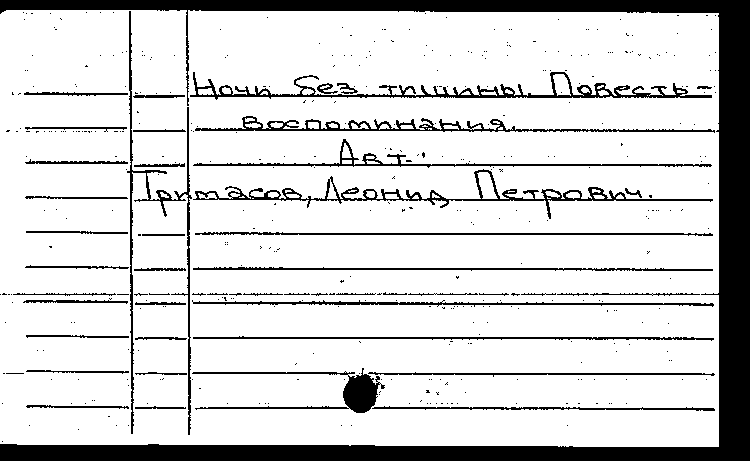 Ночи без тишины. Повесть-
воспоминания.
Авт.:
Тримасов, Леонид Петрович.